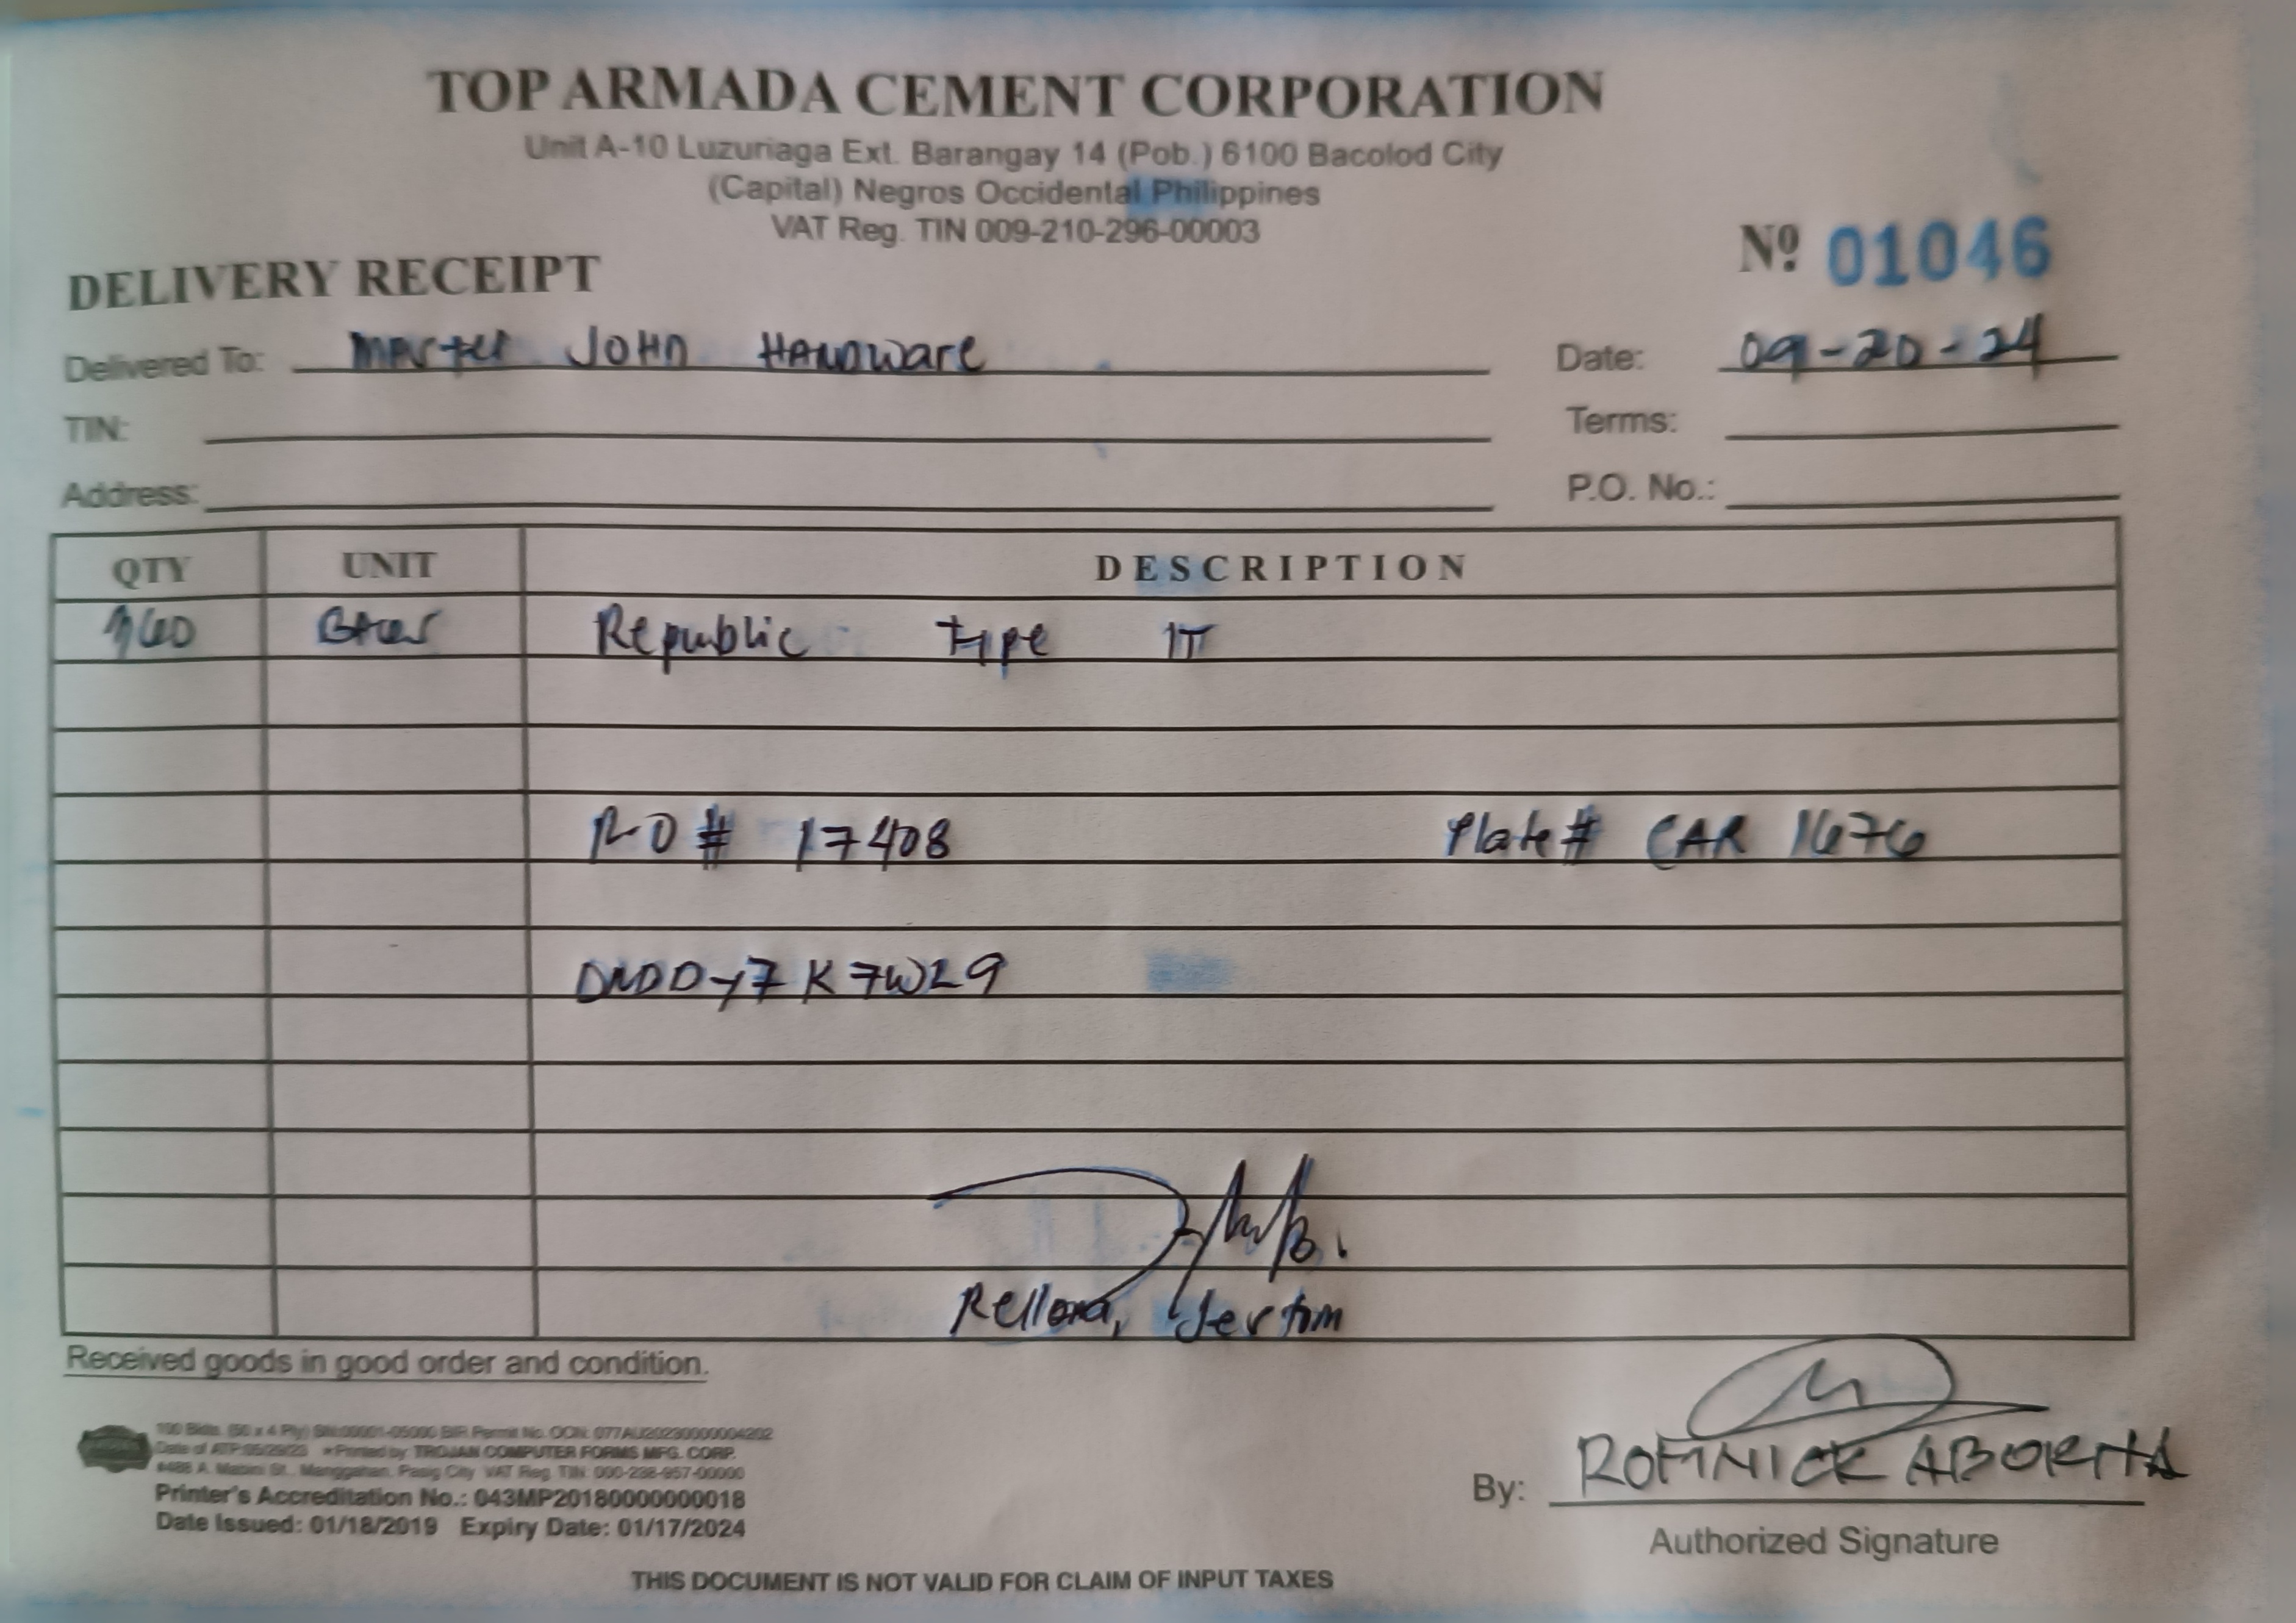 TOP ARMADA CEMENT CORPORATION
Unit A-10 Luzuriaga Ext. Barangay 14 (Pob.) 6100 Bacolod City
(Capital) Negros Occidental Philippines
VAT Reg. TIN 009-210-296-00003
Nº 01046
DELIVERY RECEIPT
Delivered To: Master John Hardware Date: 09-20-24
TIN: Terms:
Address: P.O. No.:
QTY UNIT DESCRIPTION
Republic Type
RO # 17408 Plate # CAR 1676
Rellona,
Received goods in good order and condition.
100 Bklts. (50 x 4 Ply) SN:00001-05000 BIR Permit No. OCN: 077AU20230000004202
Date of ATP:05/29/23 *Printed by: TROJAN COMPUTER FORMS MFG. CORP.
4488 A. Mabini St., Manggahan, Pasig City VAT Reg. TIN: 000-238-957-00000
Printer's Accreditation No.: 043MP20180000000018
Date Issued: 01/18/2019 Expiry Date: 01/17/2024
By: ROMNICK ABORHA
Authorized Signature
THIS DOCUMENT IS NOT VALID FOR CLAIM OF INPUT TAXES